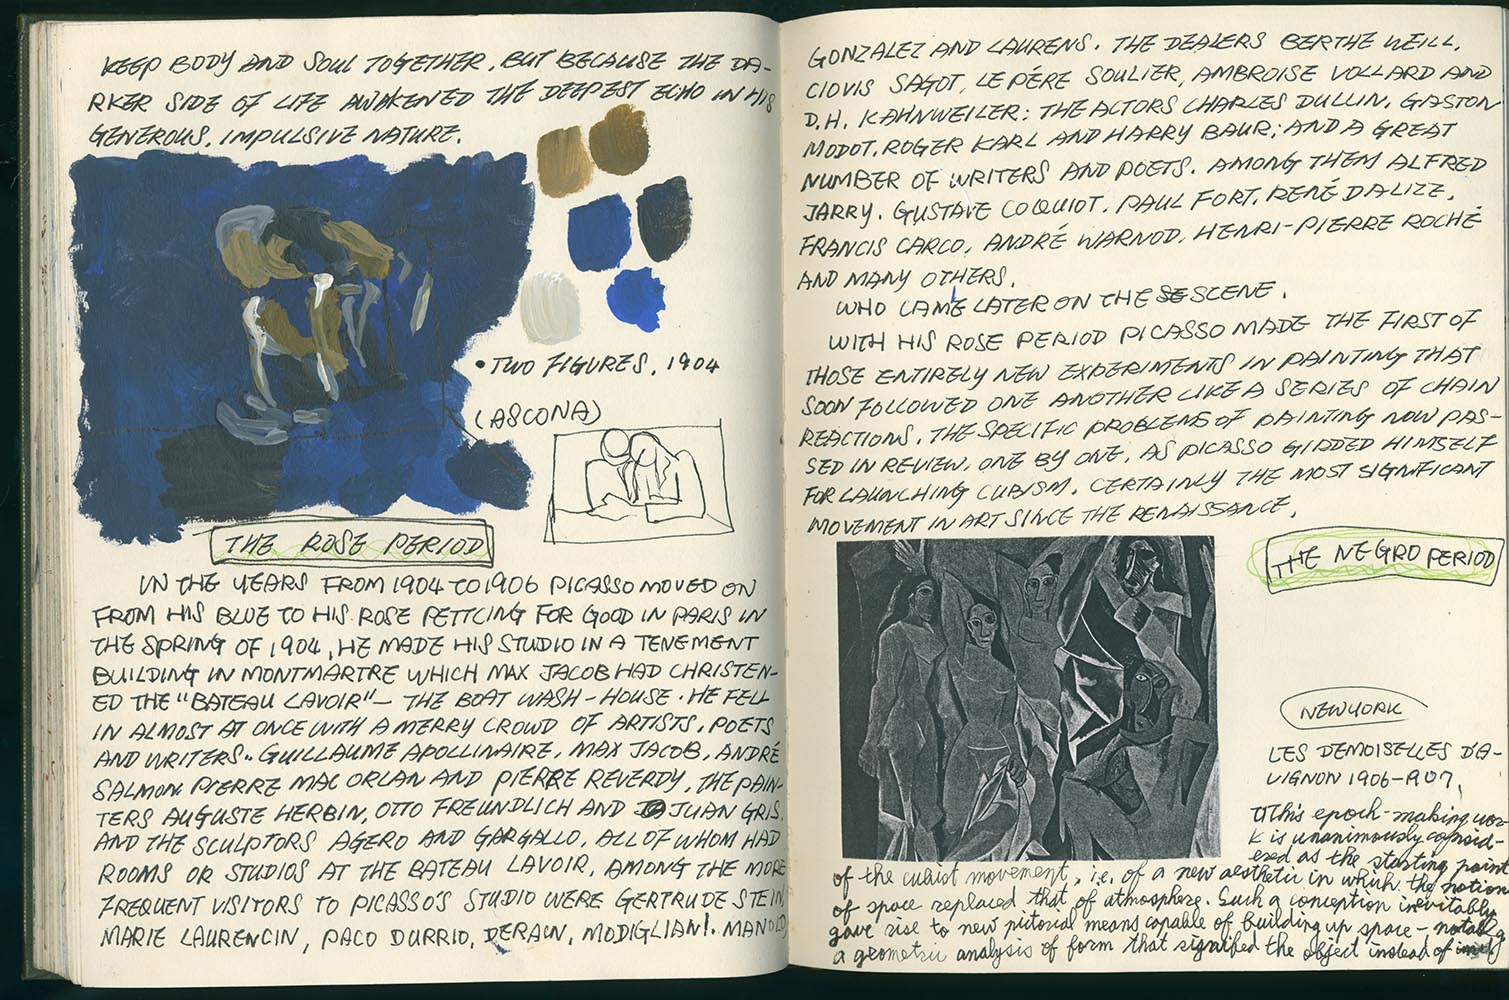 KEEP BODY AND SOUL TOGETHER, BUT BECAUSE THE DA-
RKER SIDE OF LIFE AWAKENED THE DEEPEST ECHO IN HIS
GENEROUS, IMPULSIVE NATURE.
• TWO FIGURES, 1904
(ASCONA)
THE ROSE PERIOD
IN THE YEARS FROM 1904 TO 1906 PICASSO MOVED ON
FROM HIS BLUE TO HIS ROSE PETTLING FOR GOOD IN PARIS IN
THE SPRING OF 1904, HE MADE HIS STUDIO IN A TENEMENT
BUILDING IN MONTMARTRE WHICH MAX JACOB HAD CHRISTEN-
ED THE "BATEAU LAVOIR" — THE BOAT WASH-HOUSE. HE FELL
IN ALMOST AT ONCE WITH A MERRY CROWD OF ARTISTS, POETS
AND WRITERS.. GUILLAUME APOLLINAIRE, MAX JACOB, ANDRÉ
SALMON PIERRE MAC ORLAN AND PIERRE REVERDY, THE PAIN-
TERS AUGUSTE HERBIN, OTTO FREUNDLICH AND JUAN GRIS,
AND THE SCULPTORS AGERO AND GARGALLO, ALL OF WHOM HAD
ROOMS OR STUDIOS AT THE BATEAU LAVOIR, AMONG THE MORE
FREQUENT VISITORS TO PICASSO'S STUDIO WERE GERTRUDE STEIN
MARIE LAURENCIN, PACO DURRIO, DERAIN, MODIGLIANI. MANOLO
GONZALEZ AND LAURENS. THE DEALERS BERTHE WEILL,
CLOVIS SAGOT, LE PÉRE SOULIER, AMBROISE VOLLARD AND
D.H. KAHNWEILER; THE ACTORS CHARLES DULLIN, GASTON
MODOT, ROGER KARL AND HARRY BAUR; AND A GREAT
NUMBER OF WRITERS AND POETS. AMONG THEM ALFRED
JARRY, GUSTAVE COQUIOT, PAUL FORT, RENÉ DALIZE,
FRANCIS CARCO, ANDRÉ WARNOD, HENRI-PIERRE ROCHÉ
AND MANY OTHERS.
WHO CAME LATER ON THE SCENE.
WITH HIS ROSE PERIOD PICASSO MADE THE FIRST OF
THOSE ENTIRELY NEW EXPERIMENTS IN PAINTING THAT
SOON FOLLOWED ONE ANOTHER LIKE A SERIES OF CHAIN
REACTIONS. THE SPECIFIC PROBLEMS OF PAINTING NOW PAS-
SED IN REVIEW, ONE BY ONE, AS PICASSO GIRDED HIMSELF
FOR LAUNCHING CUBISM, CERTAINLY THE MOST SIGNIFICANT
MOVEMENT IN ART SINCE THE RENAISSANCE.
THE NEGRO PERIOD
NEWYORK
LES DEMOISELLES D'A-
VIGNON 1906-907.
This epoch-making wor-
k is unanimously consid-
ered as the starting point
of the cubist movement, i.e. of a new aesthetic in which the notion
of space replaced that of atmosphere. Such a conception inevitably
gave rise to new pictorial means capable of building up space - notably
a geometric analysis of form that signified the object instead of